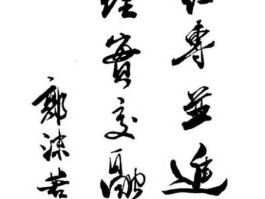 红專並進
理實交融
郭沫若